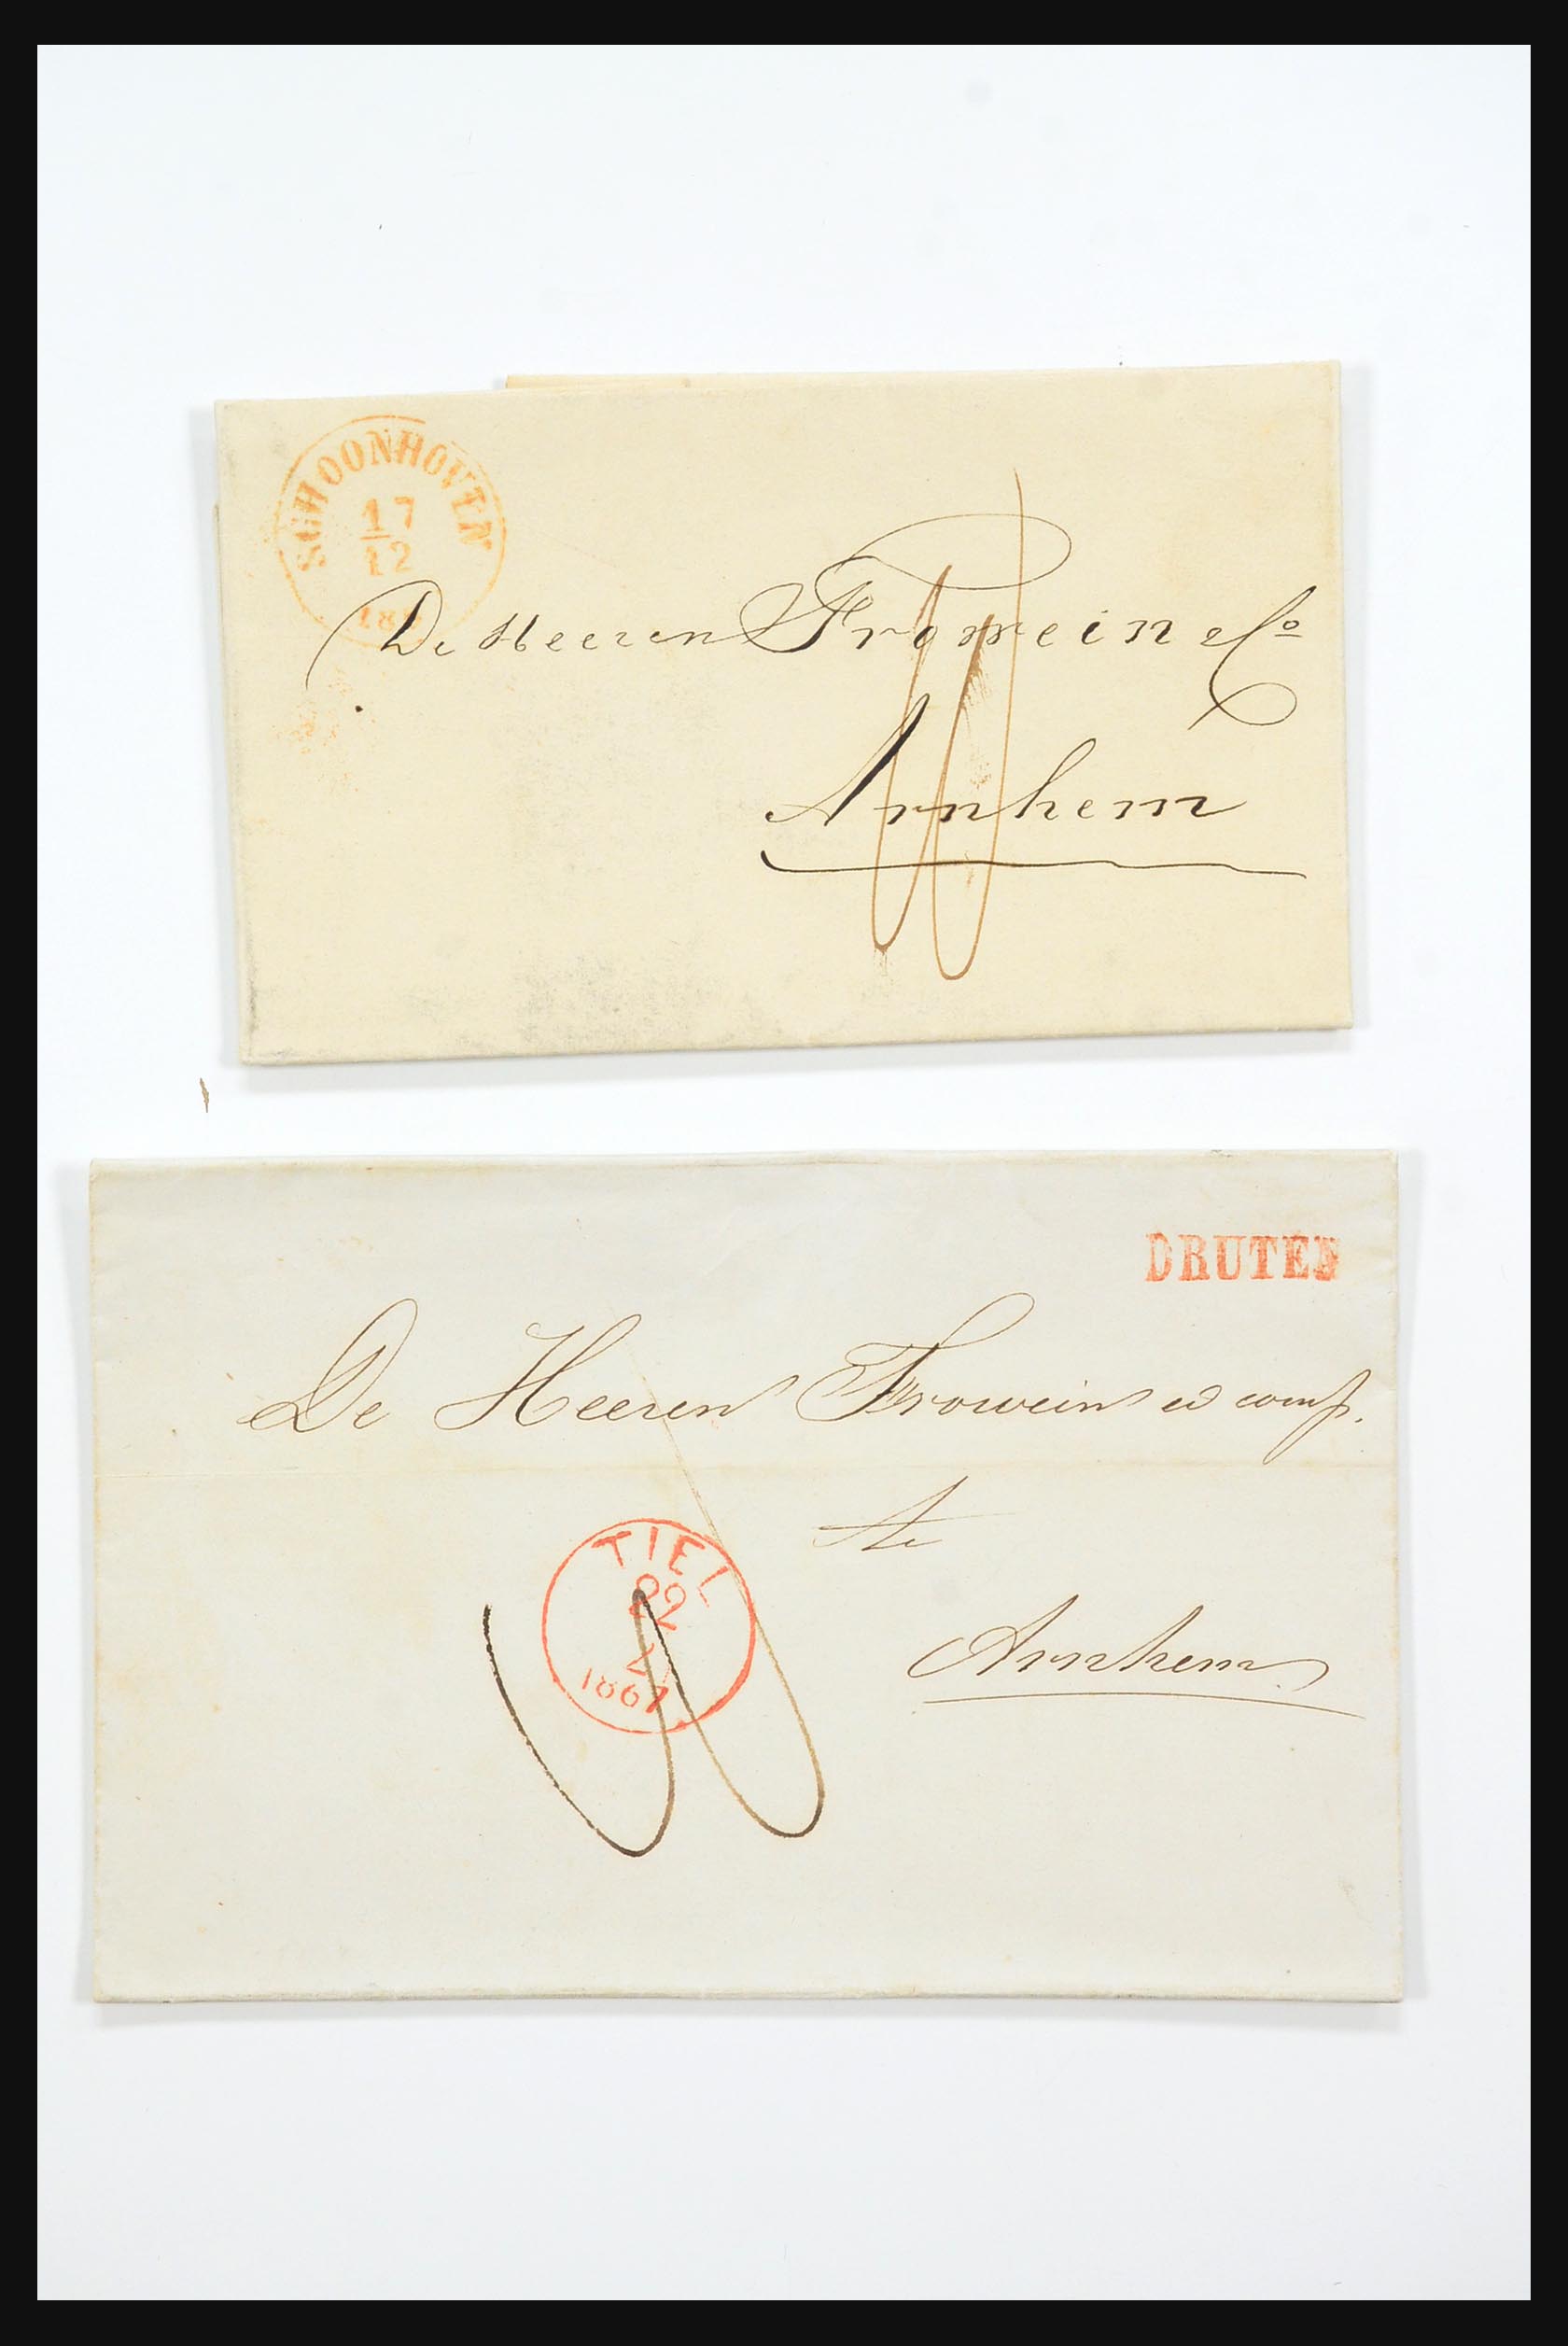 SCHOONHOVEN
17
12
De Heeren Frowein & Co
Arnhem
DRUTEN
De Heeren Frowein en comp.
te
TIEL
22
2
1867
Arnhem